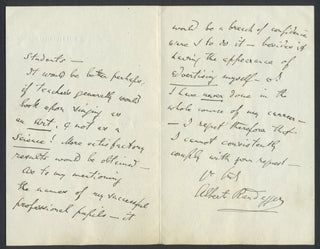 Students —
It would be better perhaps,
if teachers generally would
look upon singing as
an art, & not as a
Science! More satisfactory
results would be obtained —
As to my mentioning
the names of my successful
professional pupils — it
would be a breach of confidence
were I to do it — besides it
having the appearance of
advertising myself — as I
have never done in the
whole course of my career —
— I regret therefore that
I cannot consistently
comply with your request —
Albert Randegger